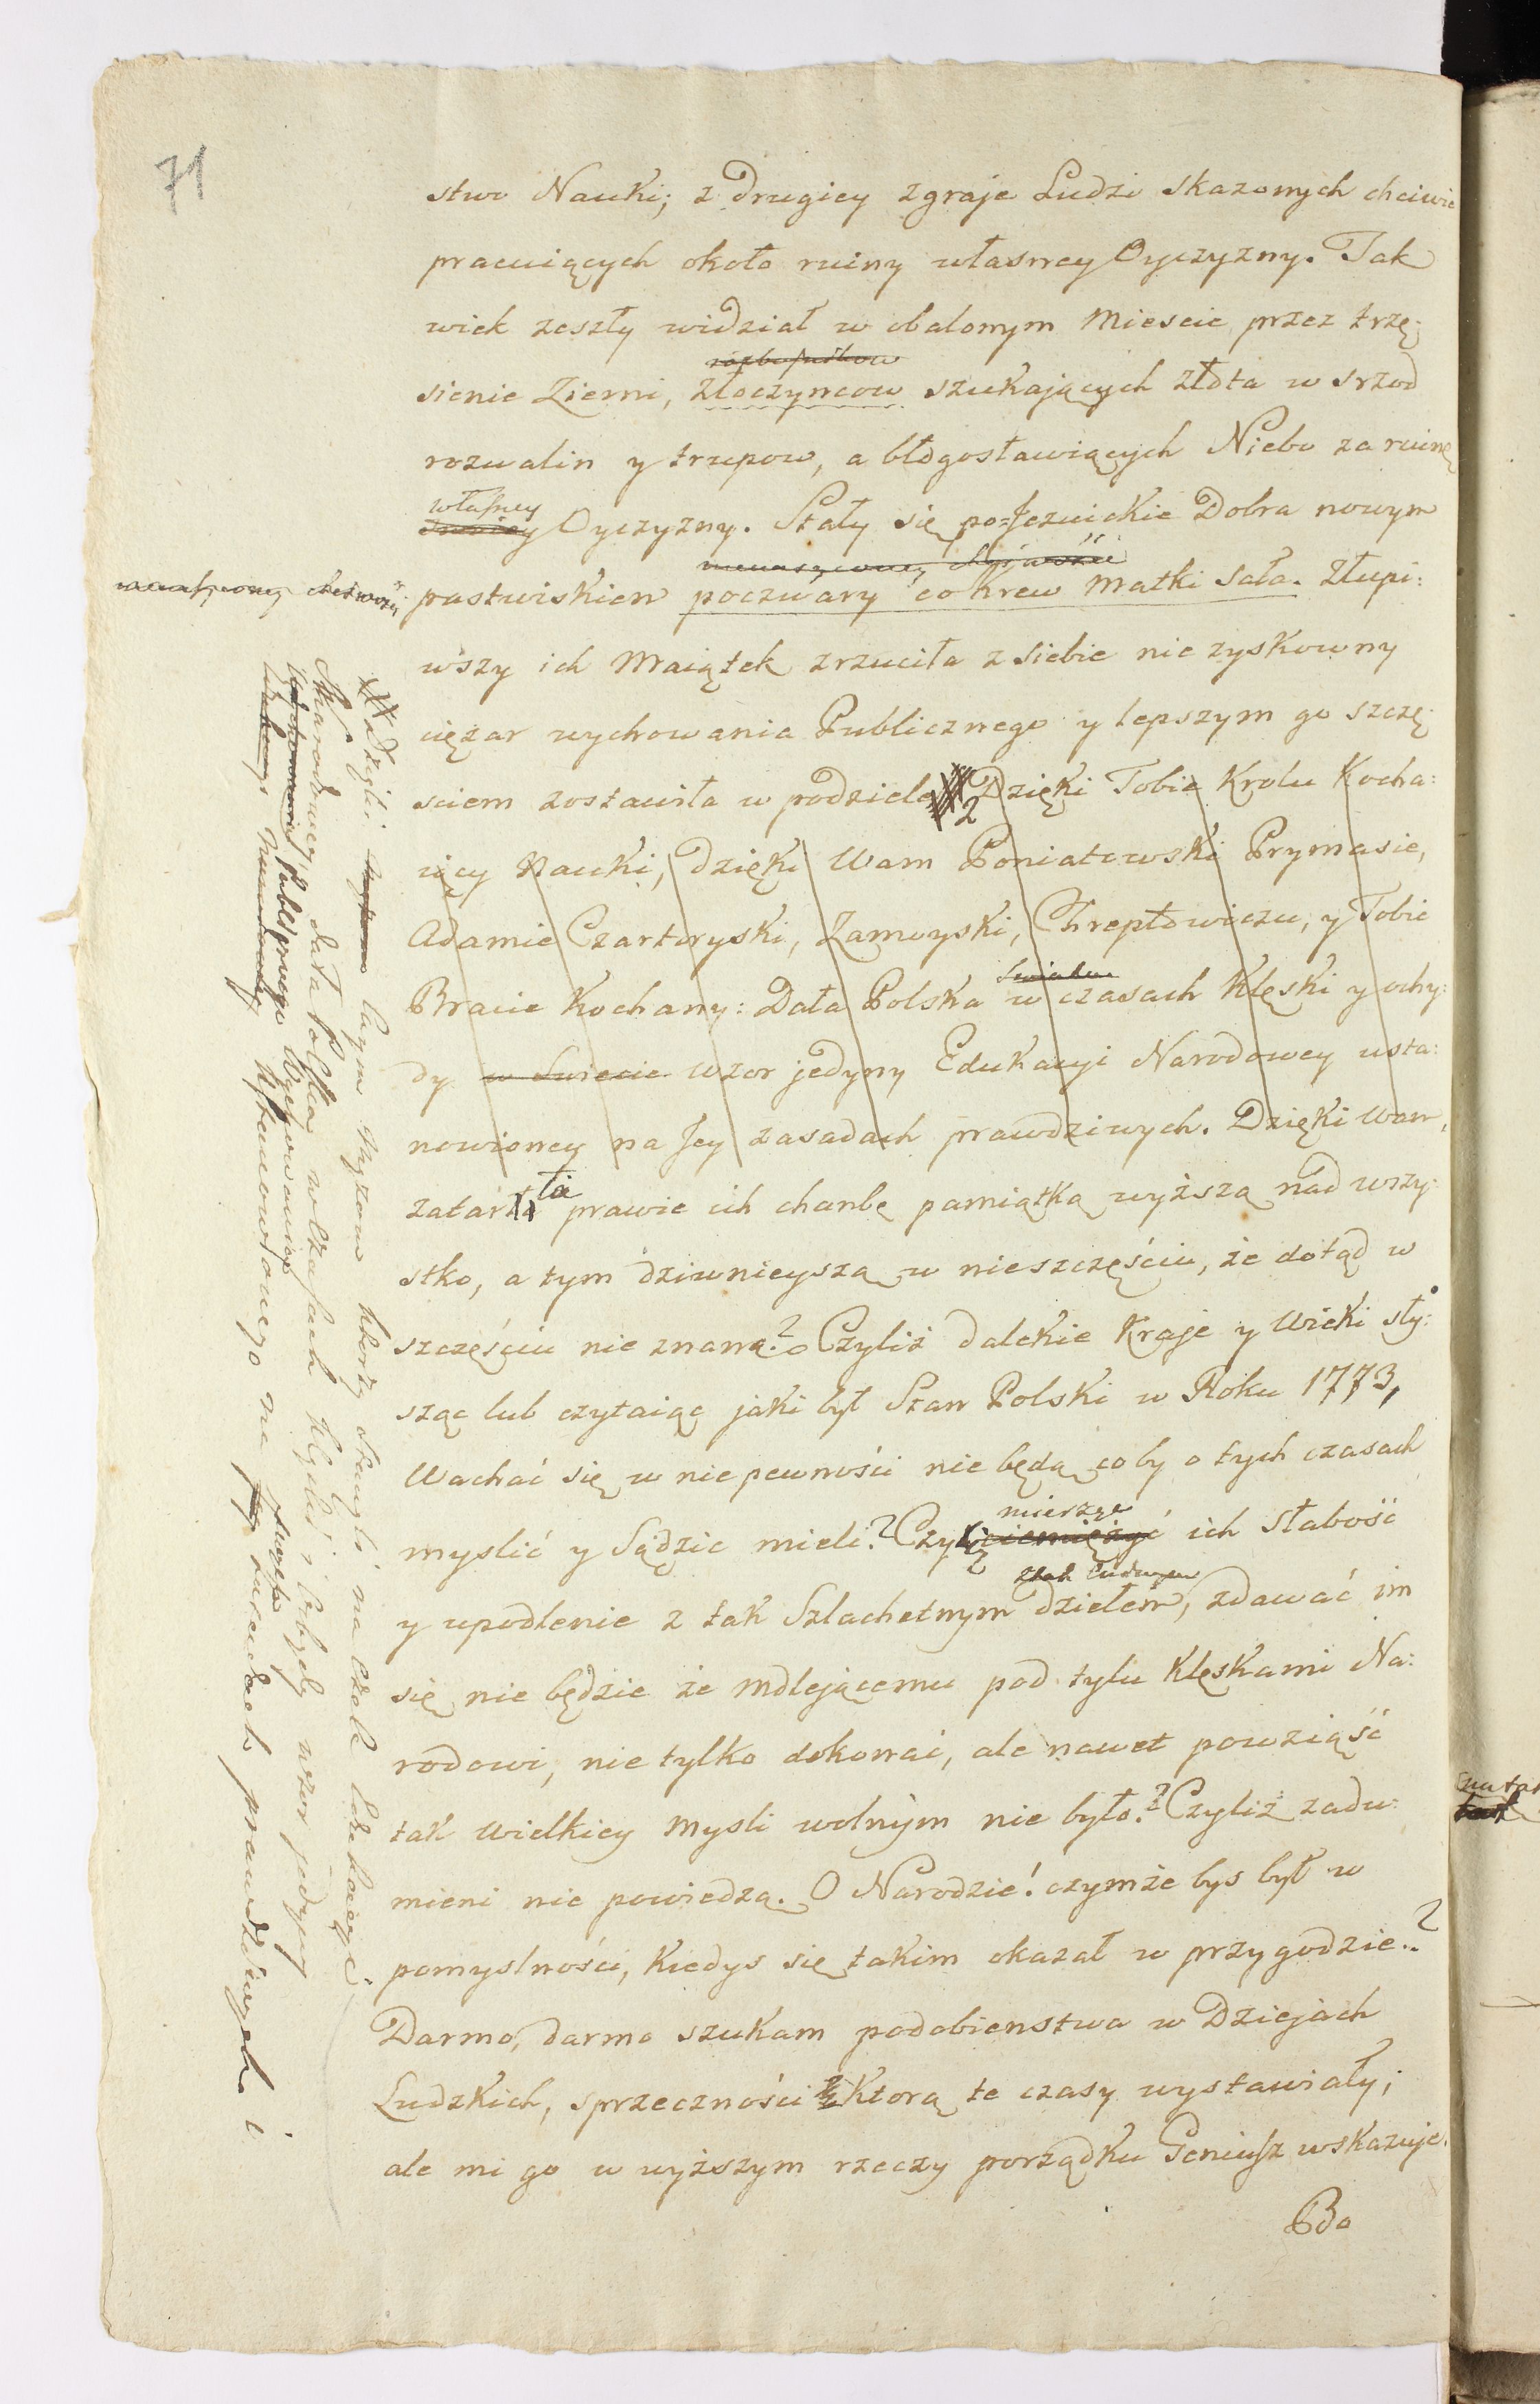 71
stwo Nauki; z drugiey zgraje Ludzi skazonych chciwie
pracuiących około ruiny własney Oyczyzny. Tak
wiek zeszły widział w obalonym Miescie przez trzę:
sienie Ziemi, złoczyncow szukających złota w srzod
rozwalin y trupow, a błogosławiących Niebo za ruinę
własney
Oyczyzny. Stały się po=Jezuickie Dobra nowym
pastwiskiem poczwary co Krew Matki Ssała. Złupi:
wszy ich Maiątek zrzuciła z siebie nie zyskowny
ciężar wychowania Publicznego y lepszym go szczę:
sciem zostawiła w podziele Dzięki Tobie Krolu Kocha:
iący Nauki, dzięki Wam Poniatowski Prymasie,
Adamie Czartoryski, Zamoyski, Chreptowiczu, y Tobie
Bracie Kochany: Dała Polska w czasach Klęski y ohy:
dy w Swiecie wzor jedyny Edukacyi Narodowey usta:
nowioney na Jey zasadach prawdziwych. Dzięki Wam,
zatarła prawie ich chanbę pamiątką wyższą nad wszy:
stko, a tym dziwnieyszą w nieszczęściu, że dotąd w
szczęściu nie znaną? Czyliż dalekie Kraje y Wieki sły:
sząc lub czytaiąc jaki był Stan Polski w Roku 1773,
Wachać się w nie pewności nie będą co by o tych czasach
mierząc
myslić y Sądzic mieli? Czyliż ich słabość
y upodlenie z tak Szlachetnym dziełem, zdawać im
się nie będzie że mdlejącemu pod tylu Klęskami Na:
rodowi, nie tylko dokonać, ale nawet powziąść
tak wielkiey mysli wolnym nie było? Czyliż zadu:
mieni nie powiedzą. O Narodzie! czymże bys był w
pomyslności, Kiedys się takim okazał w przygodzie..?
Darmo, darmo szukam podobienstwa w Dziejach
Ludzkich, sprzeczności Ktorą te czasy wystawiały;
ale mi go w wyższym rzeczy porządku Geniusz wskazuje.
Bo
Narodowey, dała Polska w czasach klęski i ohydy wzor jedyny
Publicznego Wychowania
na zasadach prawdziwych i